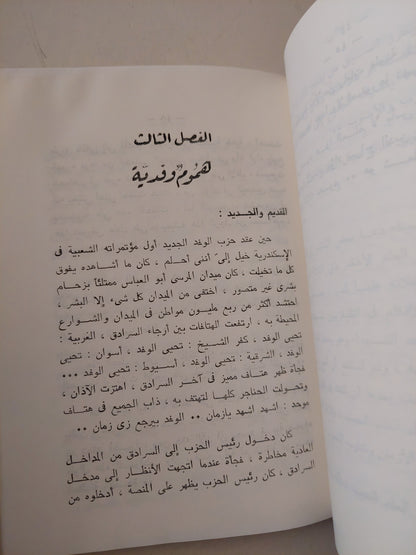 الفصل الثالث
هموم وفدية
القديم والجديد :
حين عقد حزب الوفد الجديد أول مؤتمراته الشعبية فى
الإسكندرية خيل إلى أننى أحلم ، كان ما أشاهده يفوق
كل ما تخيلت ، كان ميدان المرسى أبو العباس ممتلئاً بزحام
بشرى غير متصور ، اختفى من الميدان كل شىء إلا البشر ،
احتشد أكثر من ربع مليون مواطن فى الميدان والشوارع
المحيطة به ، ارتفعت الهتافات بين أرجاء السرادق ، الغربية :
تحيى الوفد ، كفر الشيخ : تحيى الوفد ، أسوان : تحيى
الوفد ، الشرقية : تحيى الوفد ، أسيوط : تحيى الوفد ...
فجأة ظهر هتاف مميز فى آخر السرادق ، اهتزت الآذان ،
وتحولت الحناجر كلها لتهتف به ، ذاب الجميع فى هتاف
موحد : اشهد اشهد يازمان .. الوفد بيرجع زى زمان ..
كان دخول رئيس الحزب إلى السرادق من المداخل
العادية مخاطرة ، فجأة عندما اتجهت الأنظار إلى مدخل
السرادق ، كان رئيس الحزب يظهر على المنصة ، أدخلوه من